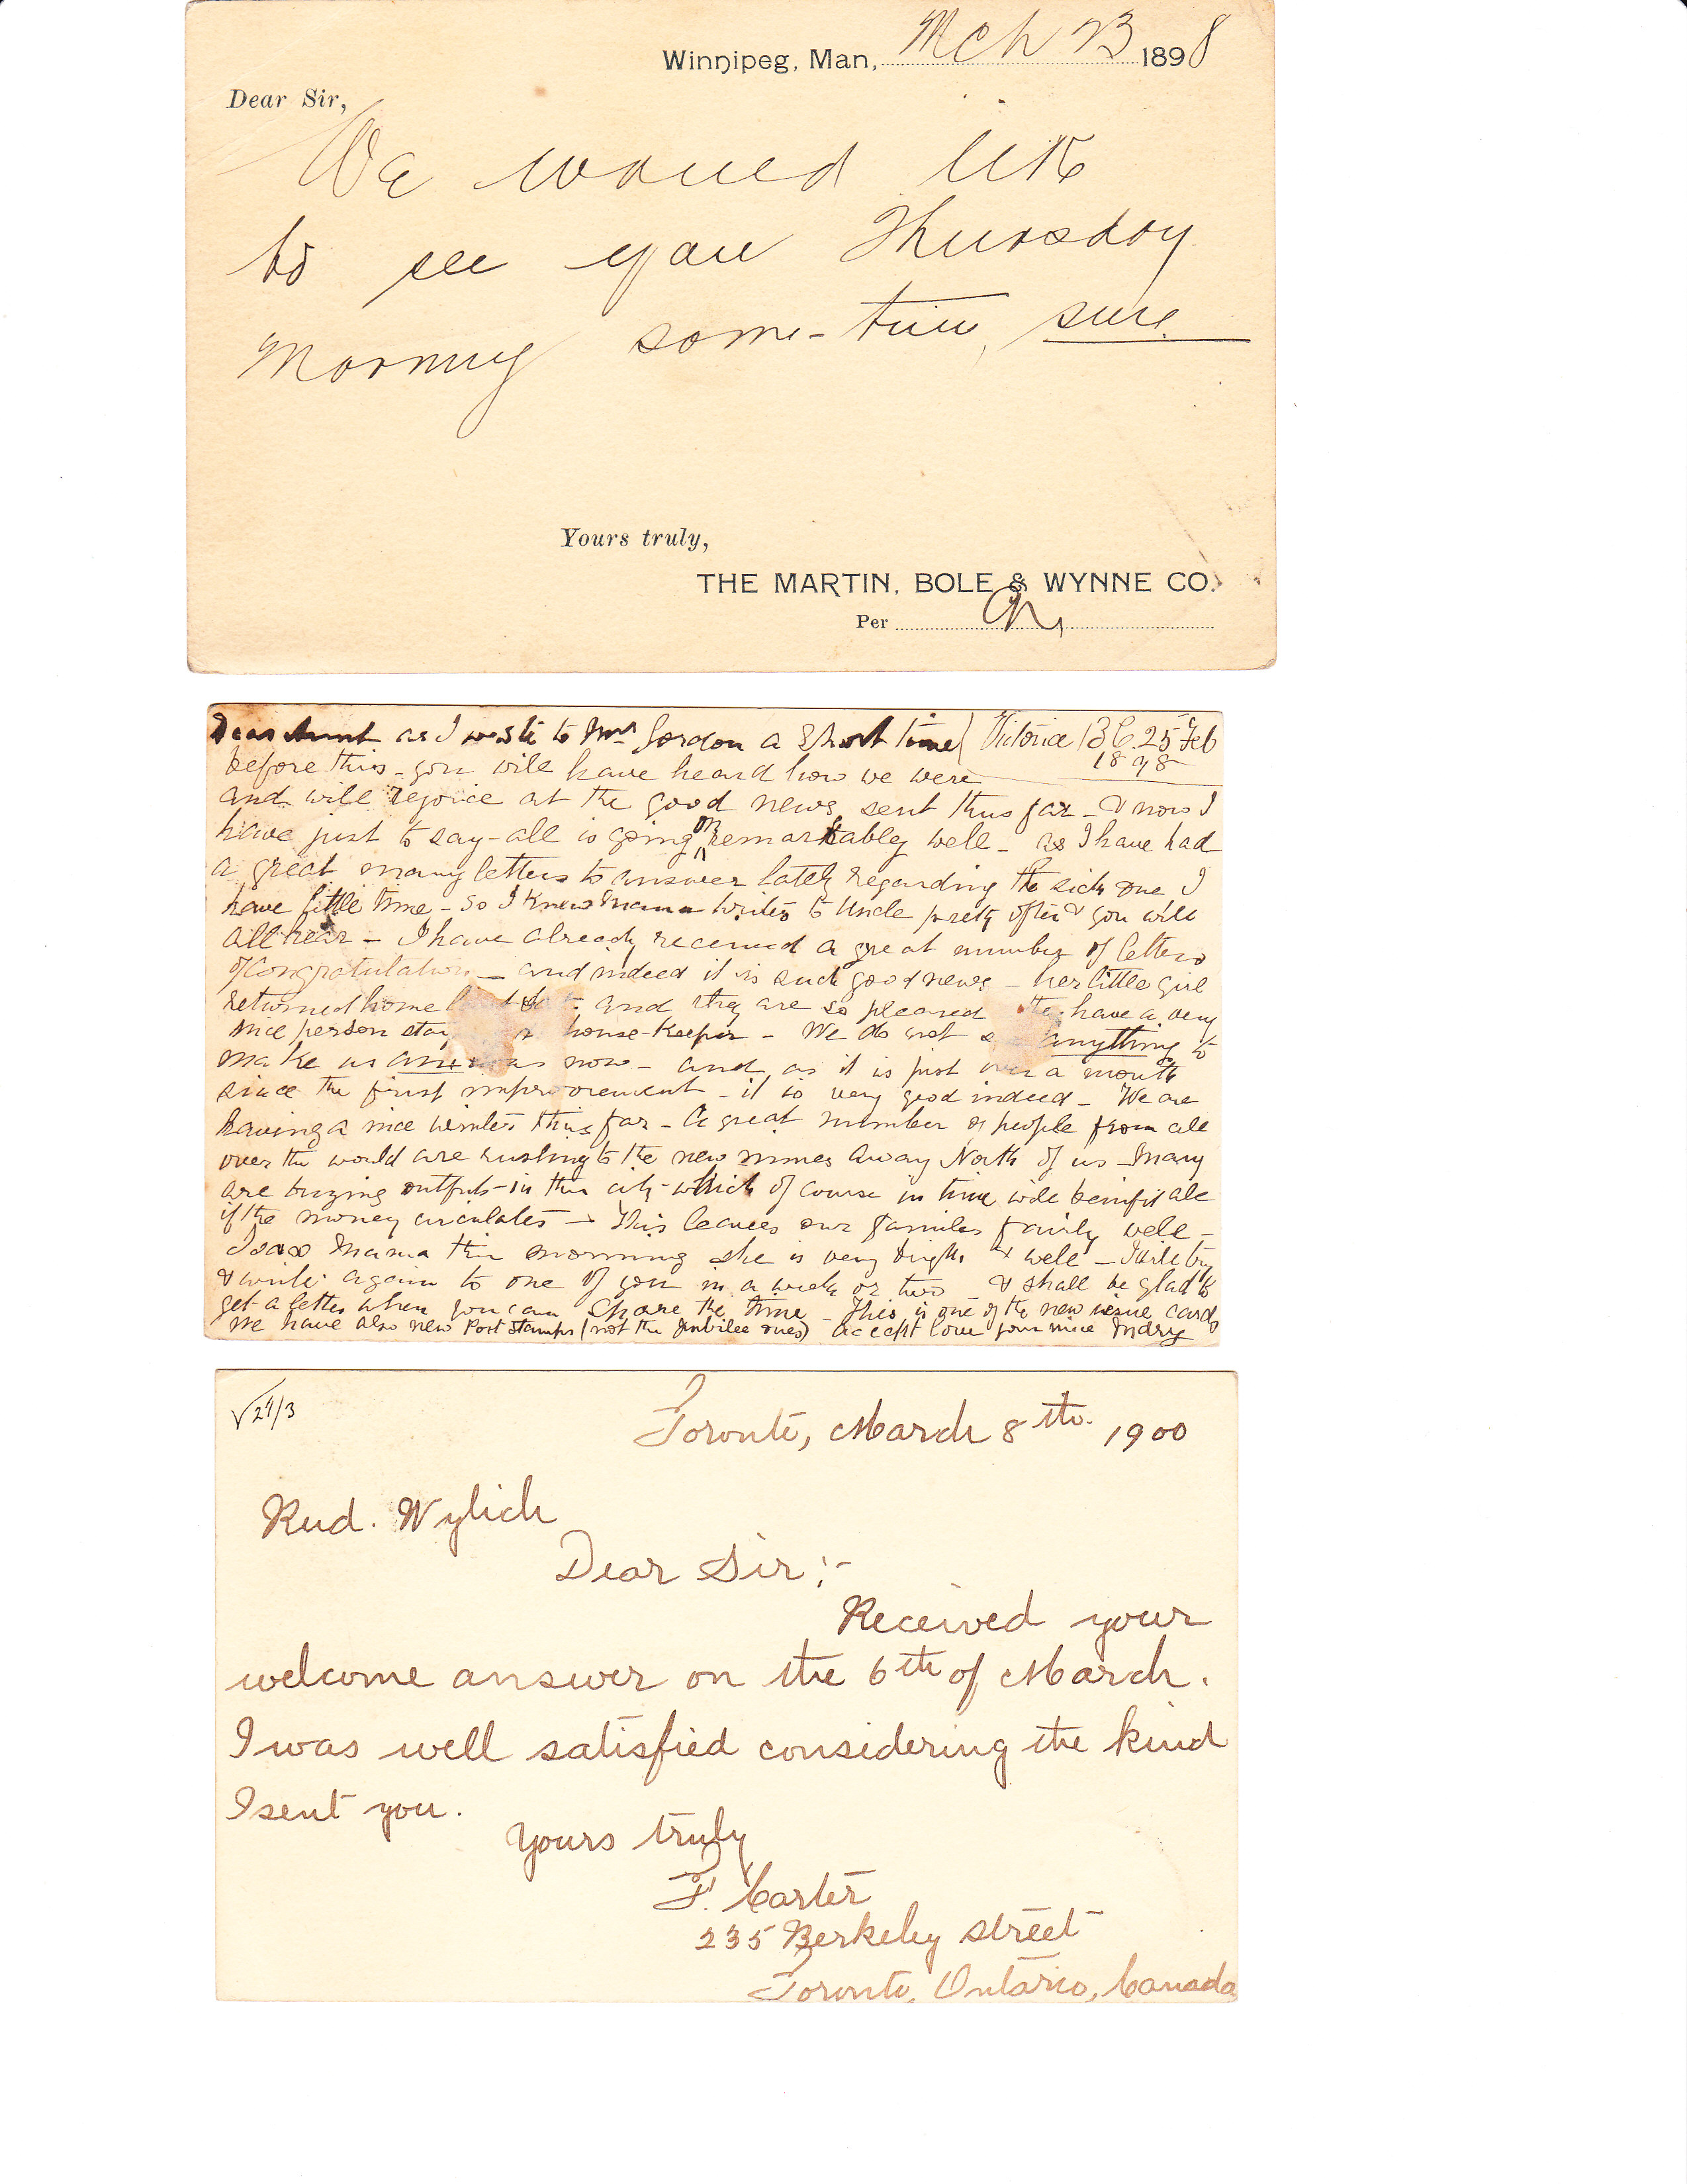 Winnipeg, Man, Mch 23 1898
Dear Sir,
We would like
to see you Thursday
Morning some-time, sure
Yours truly,
THE MARTIN, BOLE & WYNNE CO.
Per
Dear Aunt as I wrote to Mrs Gordon a short time Victoria BC. 25 Feb
1898
before this - you will have heard how we were
and will rejoice at the good news sent thus far - & now I
have just to say - all is going on remarkably well - as I have had
a great many letters to answer lately regarding the sick one I
have little time - so I know Mama writes to Uncle pretty often & you will
all hear - I have already received a great number of letters
of Congratulation - and indeed it is such good news - her little girl
returned home and they are so pleased they have a very
nice person house-keeper - We do not anything to
make us anxious now - and as it is just over a month
since the first improvement - it is very good indeed - We are
having a nice winter thus far - A great number of people from all
over the world are rushing to the new mines away North of us - Many
are buying outfits in this city - which of course in time will benifit all
if the money circulates - This leaves our families fairly well -
I saw Mama this morning she is very bright & well - I will try
& write again to one of you in a week or two & shall be glad to
get a letter when you can spare the time - This is one of the new issue cards
We have also new Post stamps (not the Jubilee ones) accept love your niece Mary
√24/3
Toronto, March 8th. 1900
Rud. Wylich
Dear Sir:-
Received your
welcome answer on the 6th of March.
I was well satisfied considering the kind
I sent you.
Yours truly
F. Carter
235 Berkeley Street
Toronto, Ontario, Canada